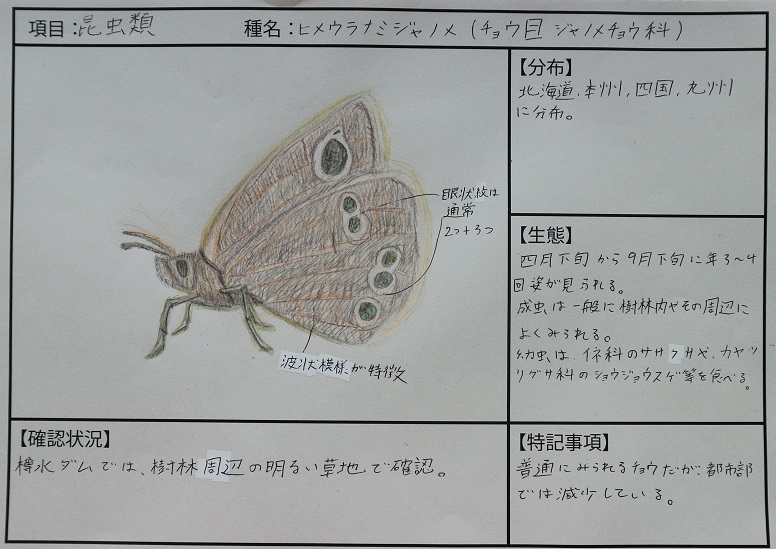 項目：昆虫類
種名：ヒメウラナミジャノメ（チョウ目 ジャノメチョウ科）
眼状紋は
通常
2つ+3つ
波状模様が特徴
【分布】
北海道，本州，四国，九州
に分布。
【生態】
四月下旬から9月下旬に年3〜4
回姿が見られる。
成虫は一般に樹林内やその周辺に
よくみられる。
幼虫は、イネ科のササクサや、カヤツ
リグサ科のショウジョウスゲ等を食べる。
【確認状況】
樽水ダムでは、樹林周辺の明るい草地で確認。
【特記事項】
普通にみられるチョウだが、都市部
では減少している。